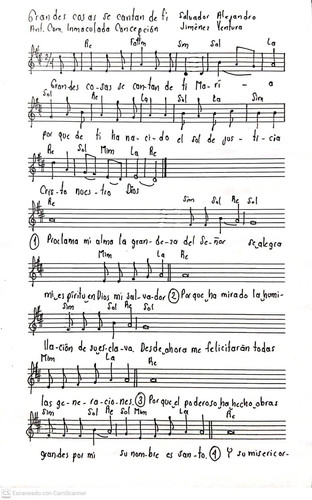 Grandes cosas se cantan de ti Salvador Alejandro
Ant. Com. Inmaculada Concepción Jiménez Ventura
Re Fa#m Sim Sol La
Grandes co-sas se can-tan de ti Ma-rí - a
Sol Re La Sol La Sim
por que de ti ha na-ci-do el sol de jus-ti-cia
Re Sol Mim La Re
Cris-to nues-tro Dios
Sim Sol Re Sol
① Proclama mi alma la gran-de-za del Se-ñor se alegra
Mim La Re
mi es píritu en Dios mi sal-va-dor ② Porque ha mirado la humi-
Sim Sol Re Sol
llación de su es cla-va. Desde ahora me felicitarán todas
Mim La Re
las ge-ne-ra-cio-nes. ③ Porque el poderoso ha hecho obras
Sim Sol Re Sol Mim La Re
grandes por mi su nom-bre es san-to. ④ Y su misericor-
CS Escaneado con CamScanner